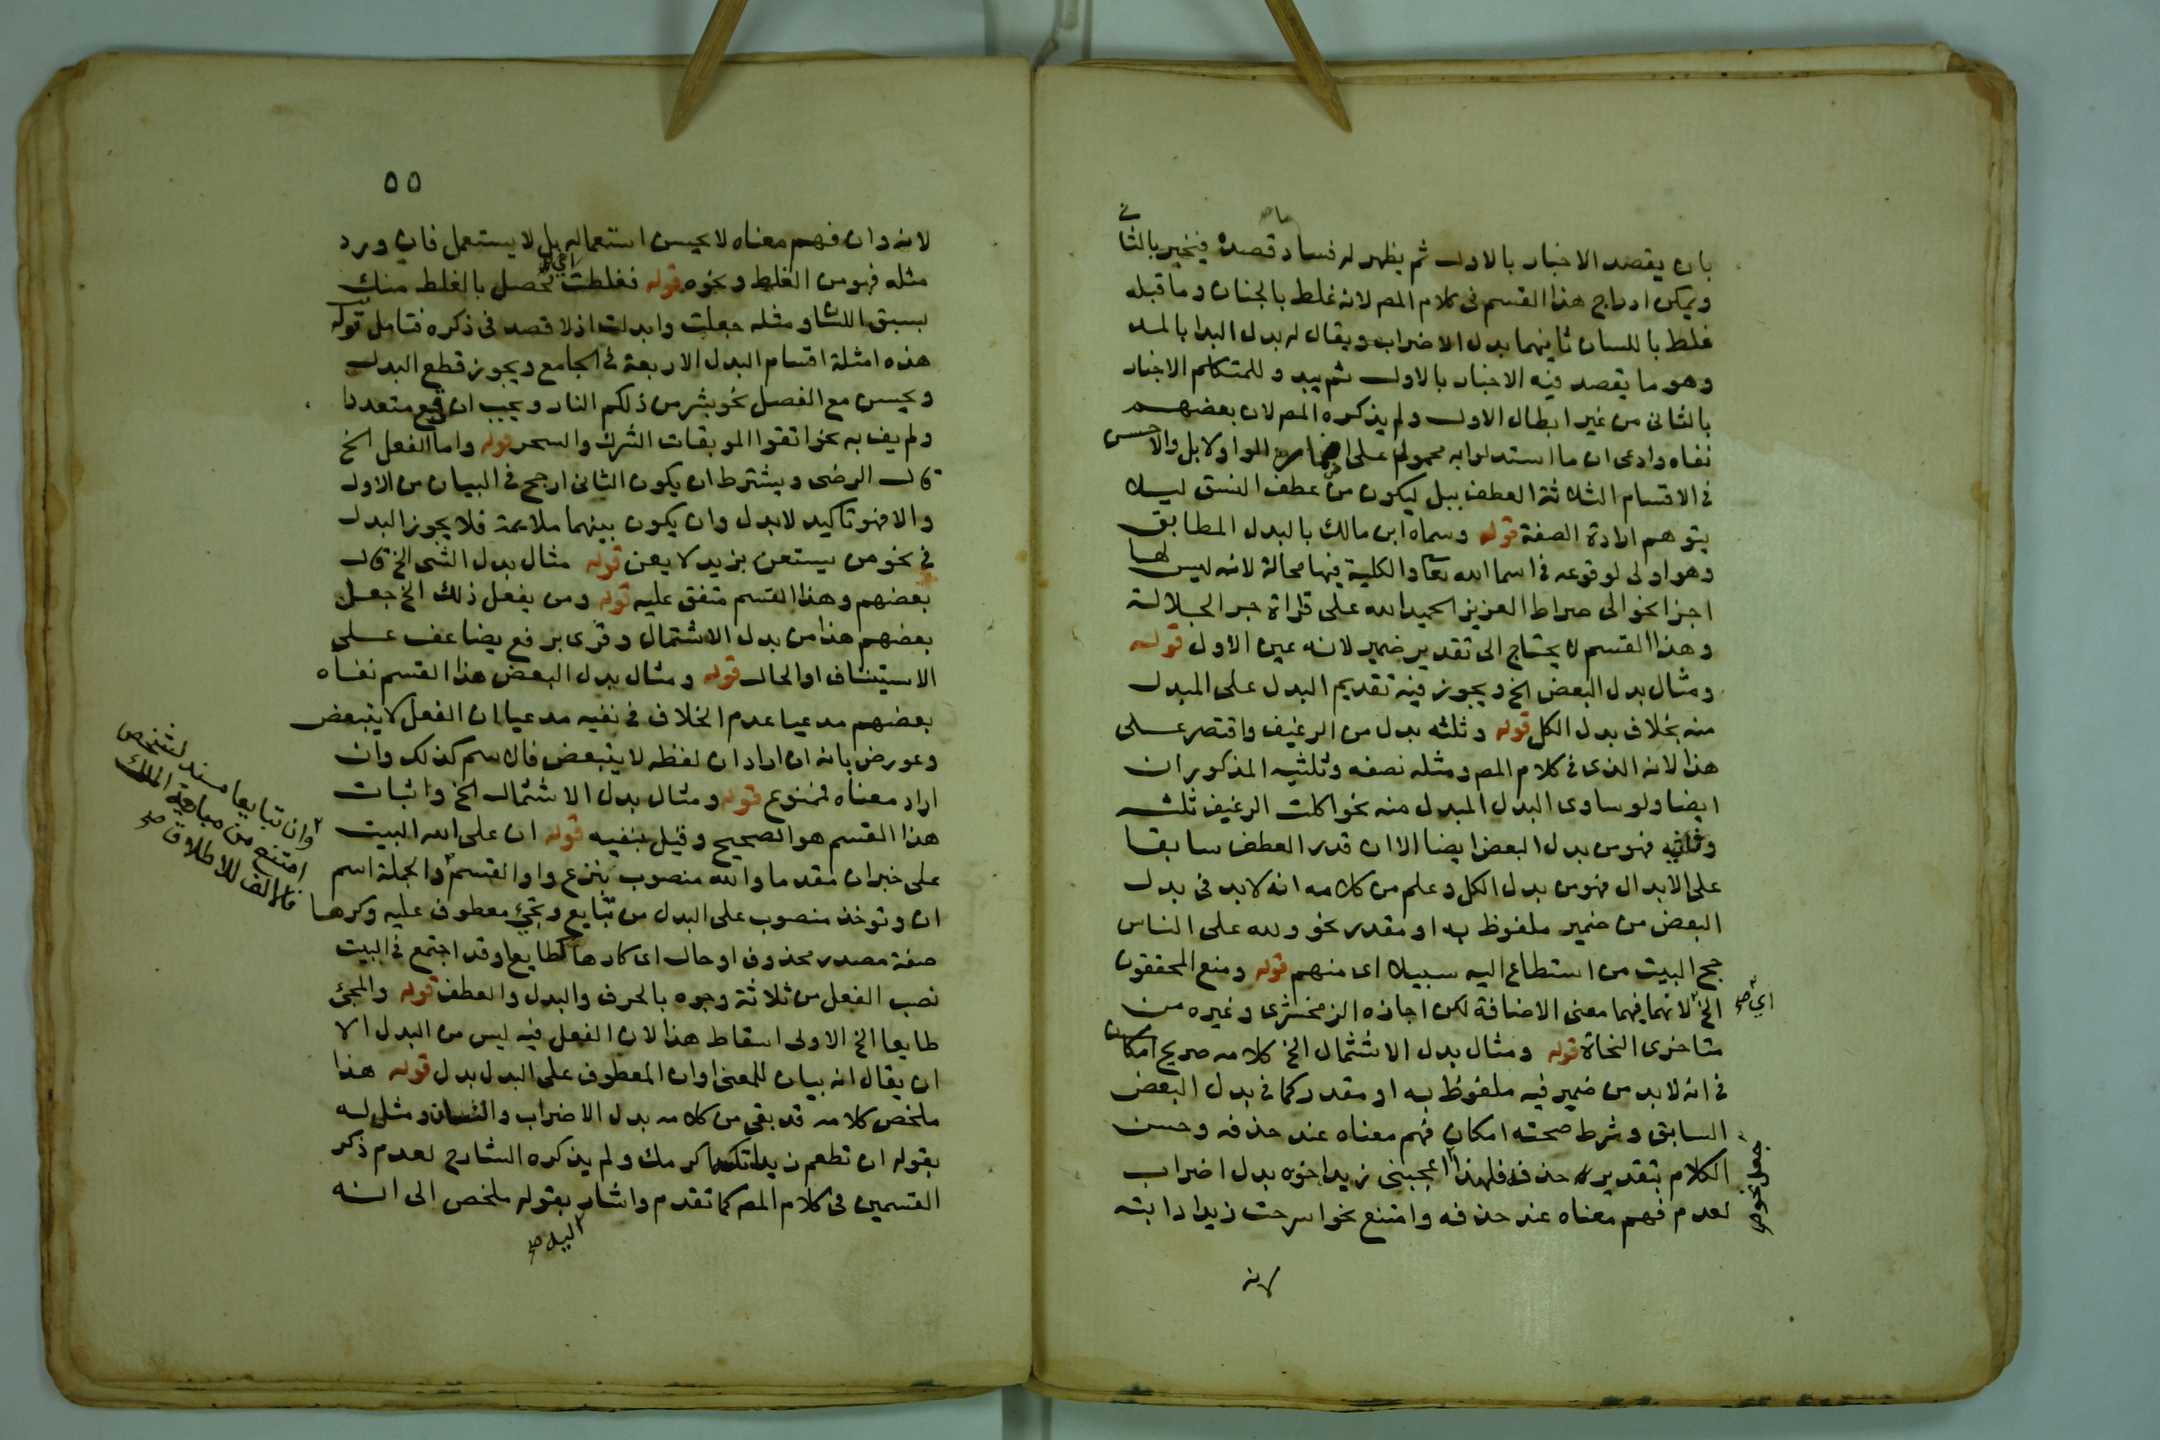 بان يقصد الاخبار بالاول ثم يظهر له فساد قصده فيخبر بالثانى
ويمكن ادراج هذا القسم فى كلام المص لانه غلط بالجنان وما قبله
غلط باللسان ثانيهما بدل الاضراب ويقال له بدل البدا بالمد
وهو ما يقصد فيه الاخبار بالاول ثم يبدو للمتكلم الاخبار
بالثانى من غير ابطال الاول ولم يذكره المص لان بعضهم
نفاه وادعى ان ما استدلوا به محمول على اضمار الواو لا بل والاحسن
فى الاقسام الثلاثة العطف ببل ليكون من عطف النسق ليلا
يتوهم ارادة الصفة قوله وسماه ابن مالك بالبدل المطابق
وهو اولى لوقوعه فى اسما الله تعا والكلية فيها محالة لانه ليس لها
اجزا نحو الى صراط العزيز الحميد الله على قراة جر الجلالة
وهذا القسم لا يحتاج الى تقدير ضمير لانه عين الاول قوله
ومثال بدل البعض الخ ويجوز فيه تقديم البدل على المبدل
منه بخلاف بدل الكل قوله وثلثه بدل من الرغيف واقتصر على
هذا لانه الذى فى كلام المص ومثله نصفه وثلثيه المذكوران
ايضا ولو ساوى البدل المبدل منه نحو اكلت الرغيف ثلثه
وثلثيه فهو من بدل البعض ايضا الا ان قدر العطف سابقا
على الابدال فهو من بدل الكل وعلم من كلامه انه لابد فى بدل
البعض من ضمير ملفوظ به او مقدر نحو ولله على الناس
حج البيت من استطاع اليه سبيلا اى منهم قوله ومنع المحققون
الخ لانهما فيهما معنى الاضافة لكن اجازه الزمخشرى وغيره من
اي صح
متاخرى النحاة قوله ومثال بدل الاشتمال الخ كلامه صريح
فى انه لابد من ضمير فيه ملفوظ به او مقدر كما فى بدل البعض
السابق وشرط صحته امكان فهم معناه عند حذفه وحسن
الكلام بتقدير حذفه فلهذا اعجبنى زيد اخوه بدل اضراب
جعل نحو صح
لعدم فهم معناه عند حذفه وامتنع نحو اسرجت زيدا دابته
لانه
٥٥
لانه وان فهم معناه لا يحسن استعماله بل لا يستعمل فان ورد
مثله فهو من الغلط ونحوه قوله فغلطت اى حصل بالغلط منك
بسبق اللسان ومثله جعلت وابدلت اذ لا قصد فى ذكره فتامل قوله
هذه امثلة اقسام البدل الاربعة فى الجامع ويجوز قطع البدل
ويحسن مع الفصل نحو بشر من ذلكم النار ويجب ان وقع متعددا
ولم يف به نحو اتقوا الموبقات الشرك والسحر قوله واما الفعل الخ
قال الرضى ويشترط ان يكون الثانى ارجح فى البيان من الاول
والا فهو تاكيد لا بدل وان يكون بينهما ملايمة فلا يجوز البدل
فى نحو من يستعن بزيد لا يعن قوله مثال بدل الشى الخ قال
بعضهم وهذا القسم متفق عليه قوله ومن يفعل ذلك الخ جعل
بعضهم هذا من بدل الاشتمال وقرى برفع يضاعف على
الاستيناف او الحال قوله ومثال بدل البعض هذا القسم نفاه
بعضهم مدعيا عدم الخلاف فى نفيه مدعيا ان الفعل لا يتبعض
وعورض بانه ان اراد ان لفظه لا يتبعض فالاسم كذلك وان
اراد معناه فممنوع قوله ومثال بدل الاشتمال الخ واثبات
هذا القسم هو الصحيح وقيل بنفيه قوله ان على الله البيت
على خبر ان مقدما والله منصوب بنزع واو القسم والجملة اسم
ان وتوخذ منصوب على البدل من تبايع وتجئ معطوف عليه وكرها
وان تبايعا مسند لشخص
امتنع من مبايعة الملك
فالالف للاطلاق صح
صفة مصدر محذوف او حال اى كارها كطايعا وقد اجتمع فى البيت
نصب الفعل من ثلاثة وجوه بالحرف والبدل والعطف قوله والمجئ
طايعا الخ الاولى اسقاط هذا لان الفعل فيه ليس من البدل الا
ان يقال انه بيان للمعنى او ان المعطوف على البدل بدل قوله هذا
ملخص كلامه قد بقى من كلامه بدل الاضراب والنسيان ومثل له
بقوله ان تطعم زيدا تكسه اكرمك ولم يذكره الشارح لعدم ذكر
القسمين فى كلام المص كما تقدم واشار بقوله ملخص الى انه